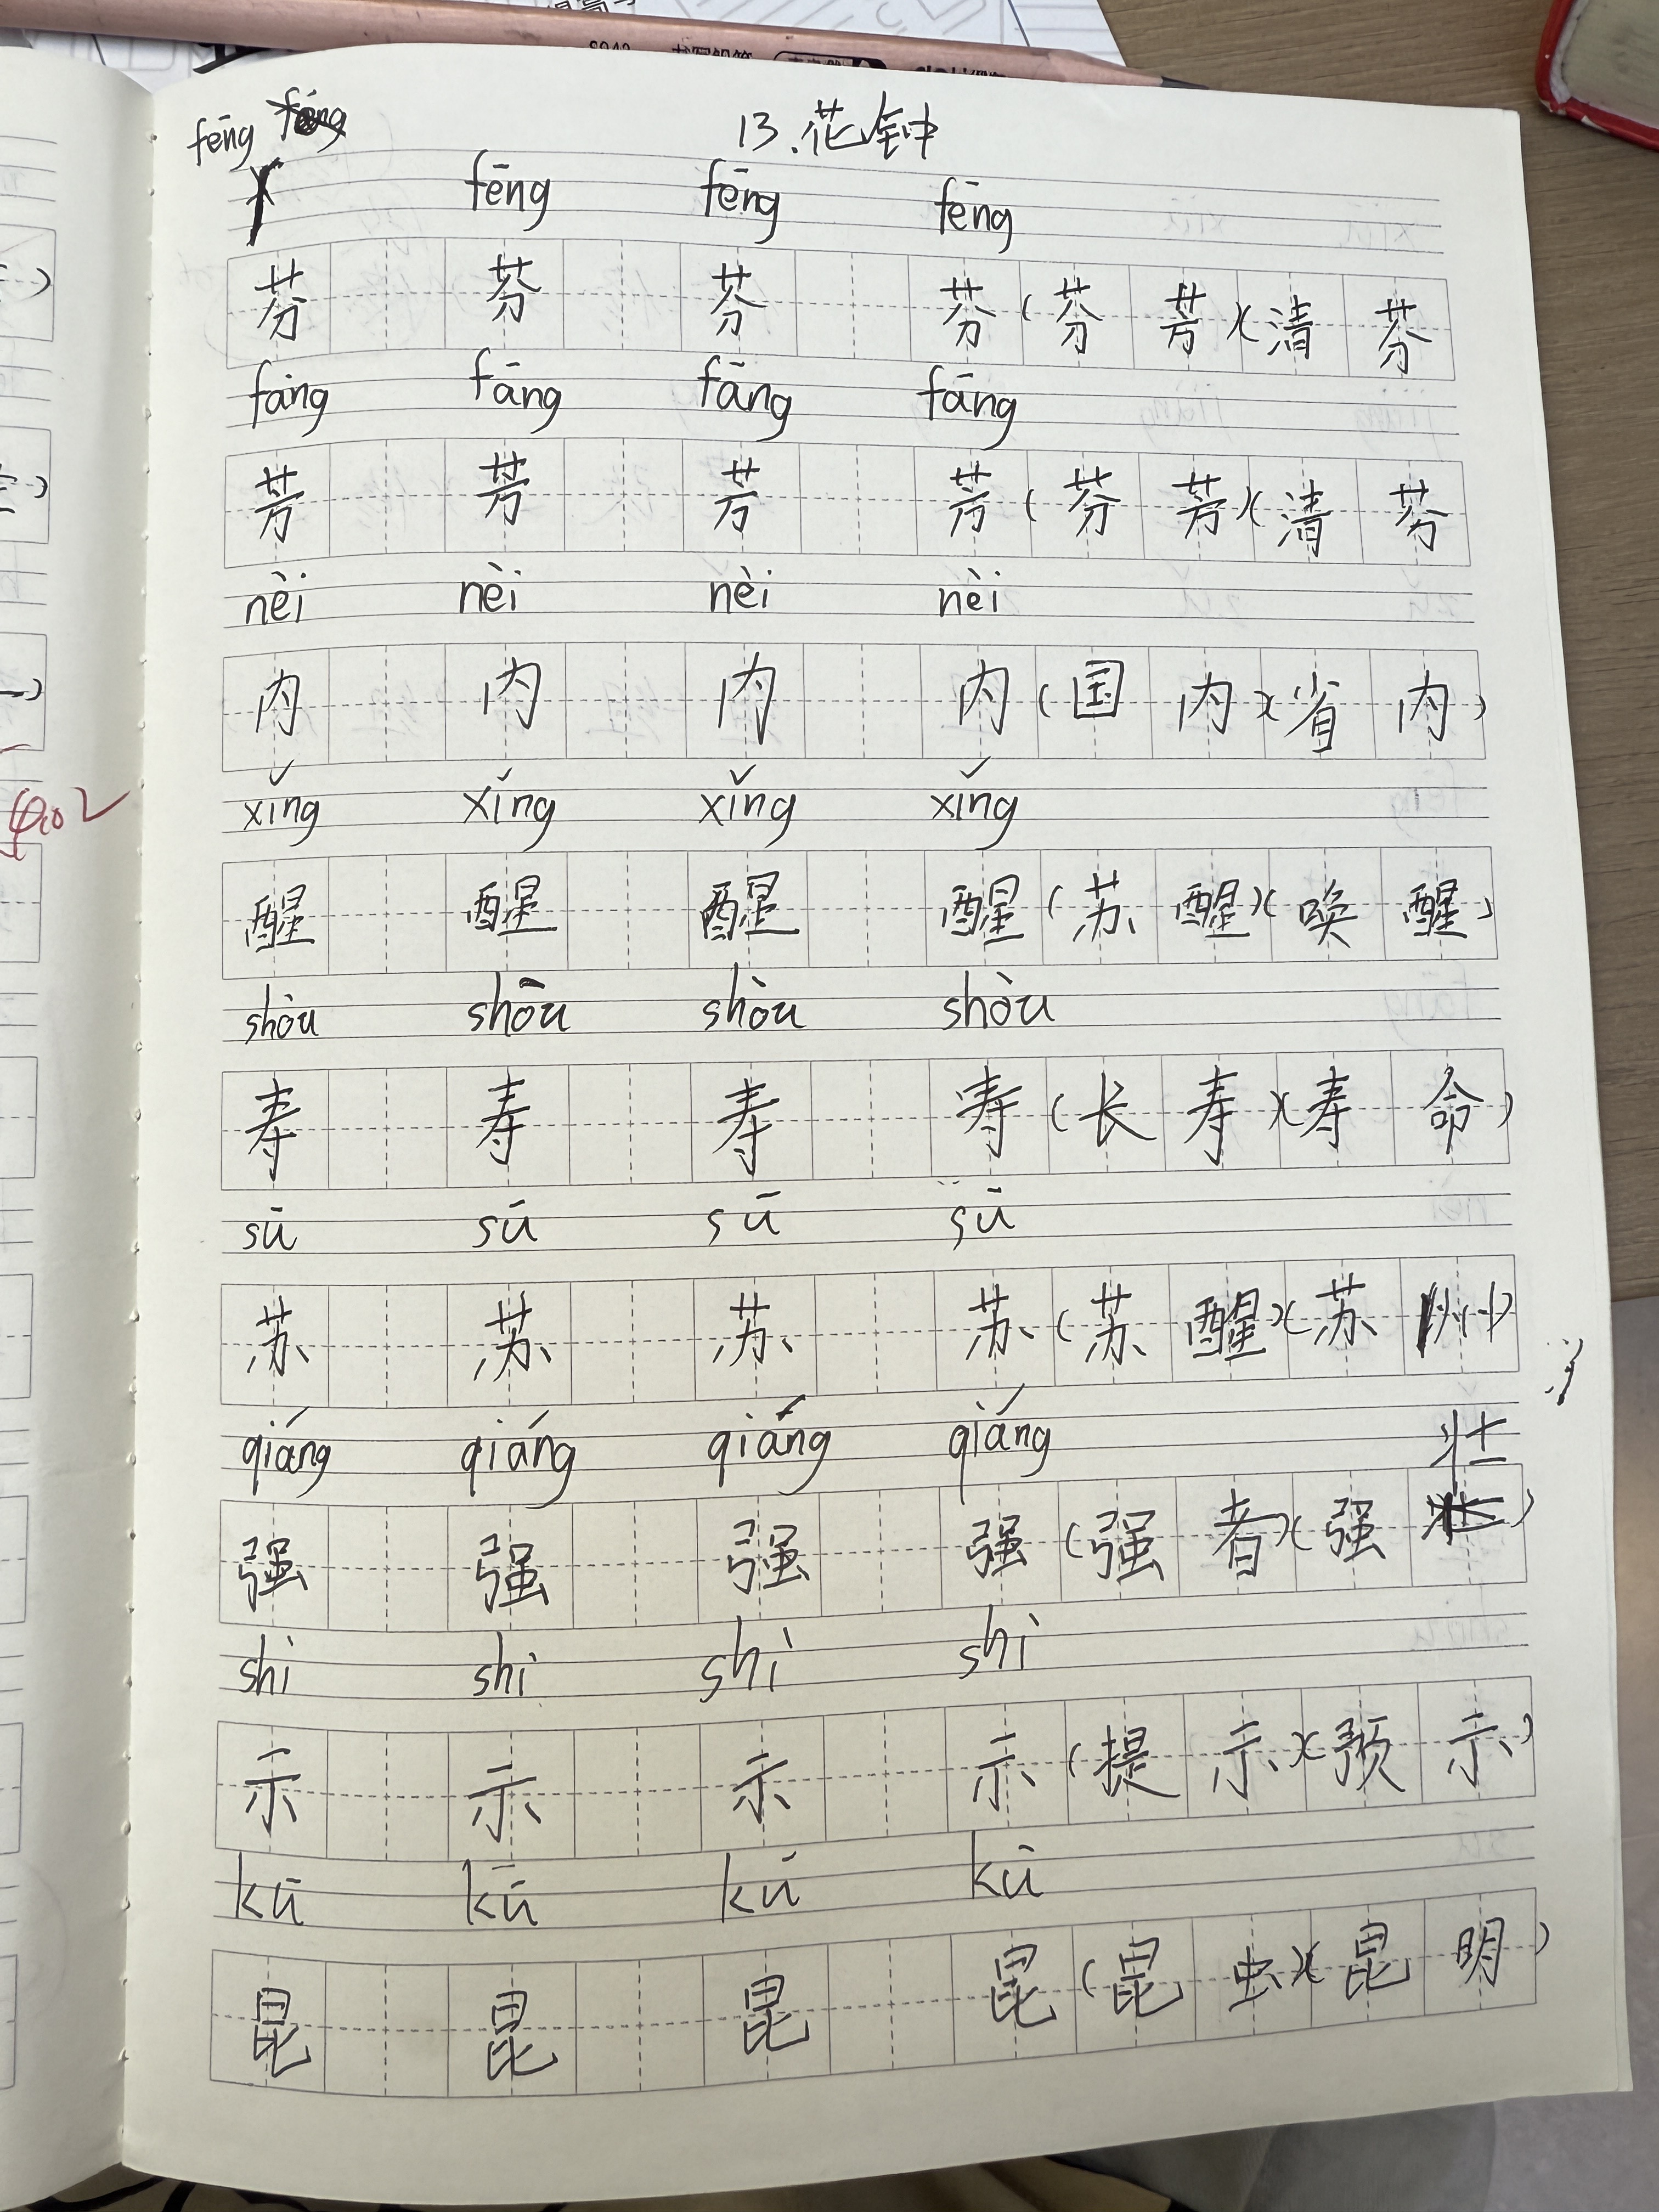 13.花钟
fēng
fēng fēng fēng
芬 芬 芬 芬(芬芳)(清芬
fāng fāng fāng fāng
芳 芳 芳 芳(芬芳)(清芬
nèi nèi nèi nèi
内 内 内 内(国内)(省内)
xǐng xǐng xǐng xǐng
醒 醒 醒 醒(苏醒)(唤醒)
shòu shōu shòu shòu
寿 寿 寿 寿(长寿)(寿命)
sū sū sū sū
苏 苏 苏 苏(苏醒)(苏州)
qiáng qiáng qiáng qiáng
壮
强 强 强 强(强者)(强)
shì shì shì shì
示 示 示 示(提示)(预示)
kū kū kū kū
昆 昆 昆 昆(昆虫)(昆明)